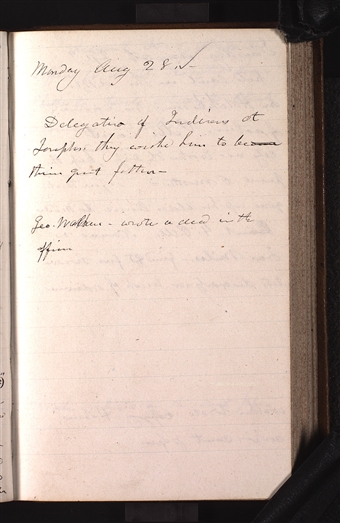 Monday Aug 28.
Delegation of Indians at
Josephs. they wishe him to be
thier great father—
Geo. Walker - wrote a deed in the
office